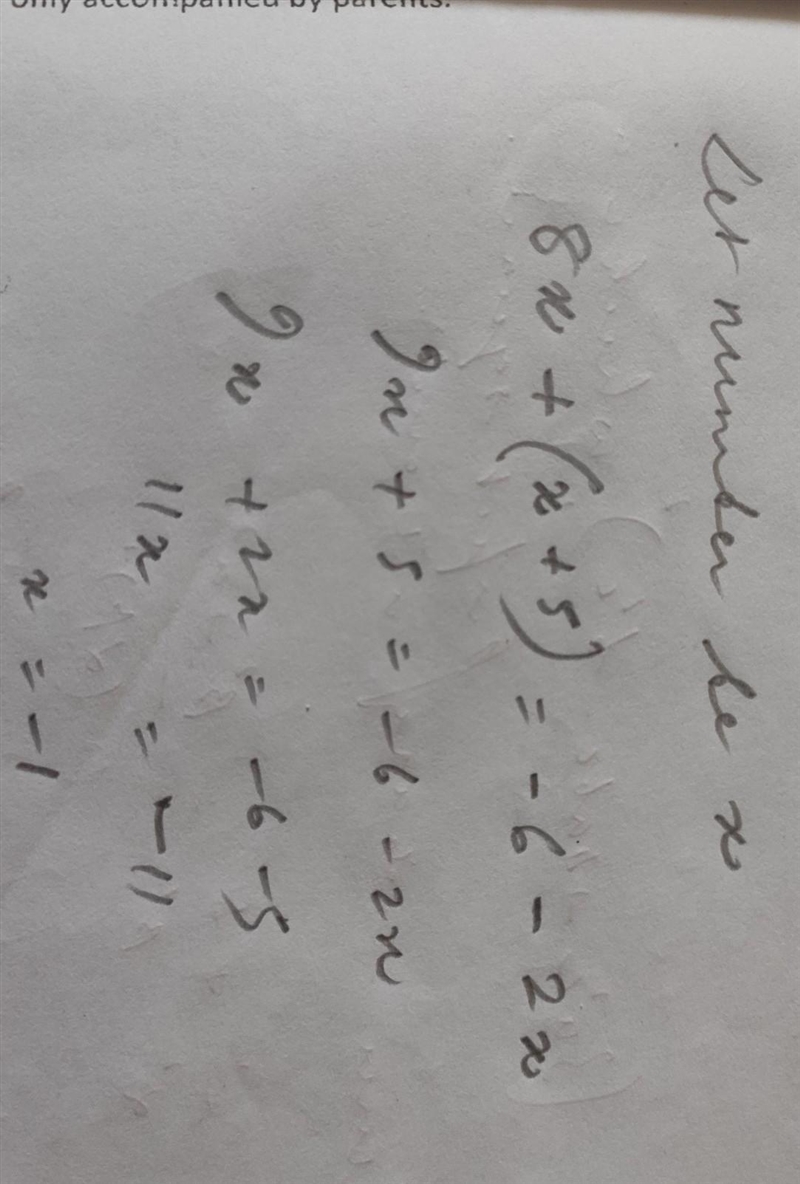 only accompanied by parents.
Let number be x
8x + (x + 5) = -6 - 2x
9x + 5 = -6 - 2x
9x + 2x = -6 -5
11x = -11
x = -1